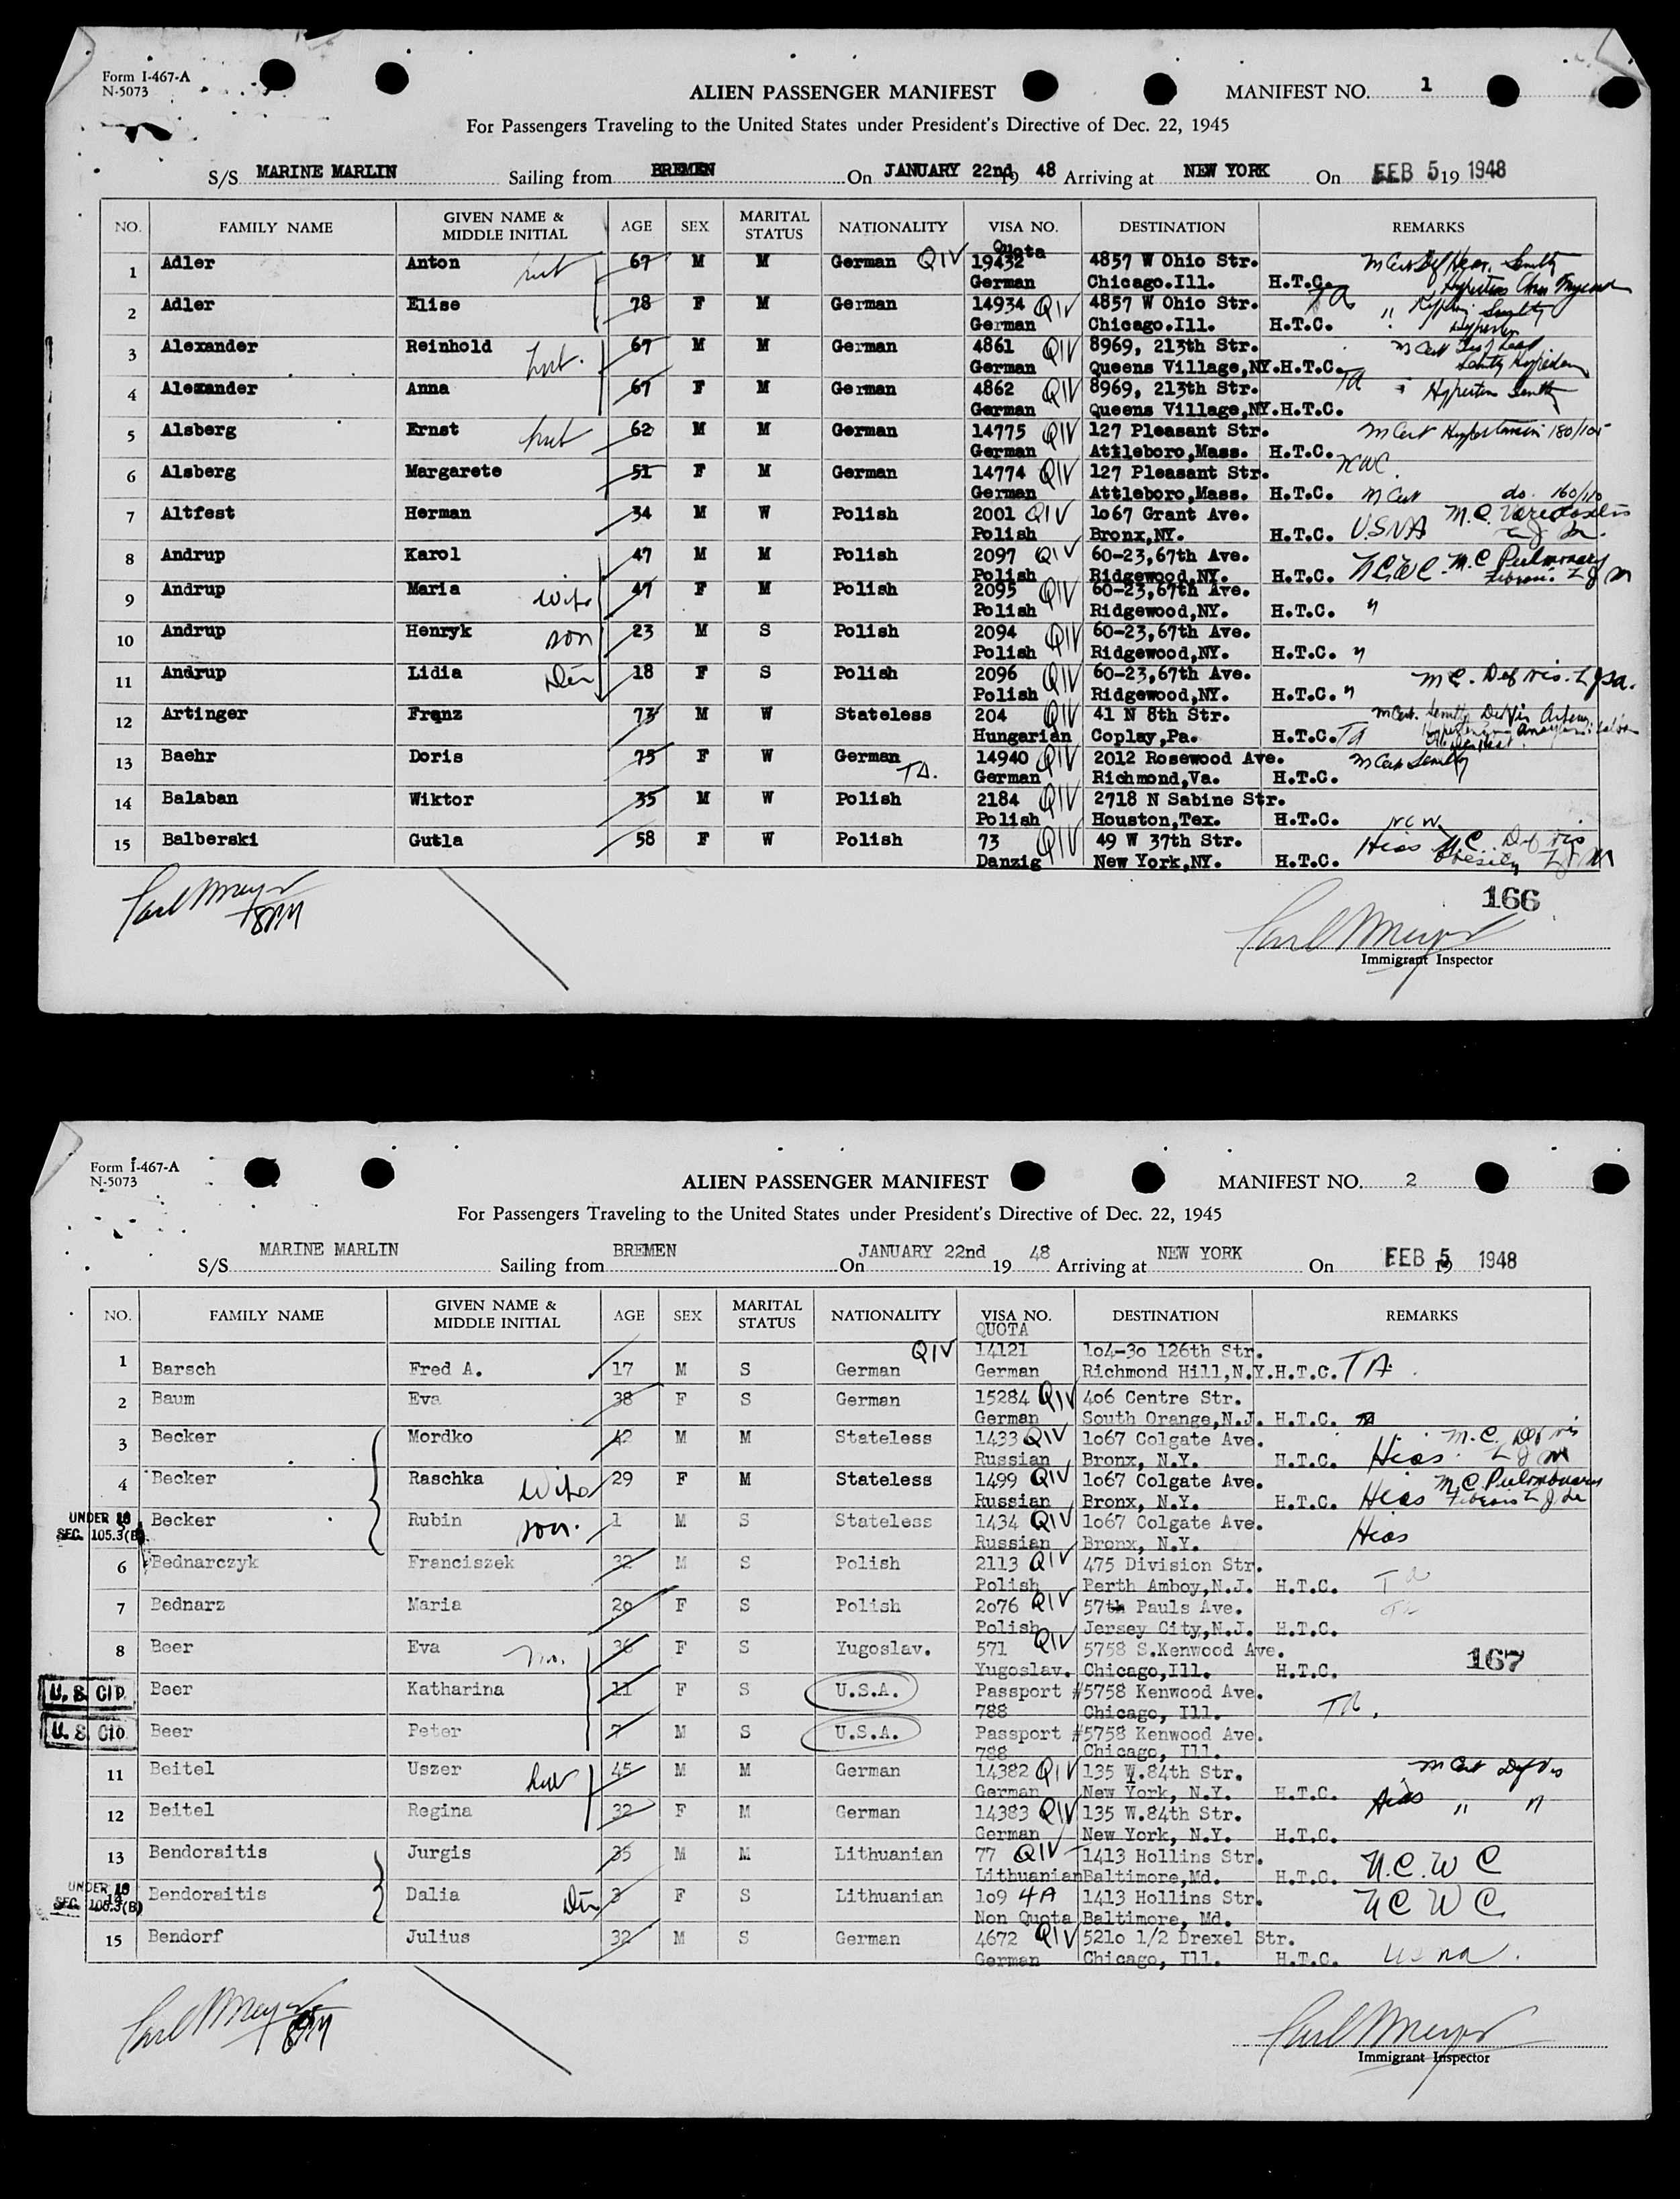 Form I-467-A
N-5073
ALIEN PASSENGER MANIFEST MANIFEST NO. 1
For Passengers Traveling to the United States under President's Directive of Dec. 22, 1945
S/S MARINE MARLIN Sailing from BREMEN On JANUARY 22nd 19 48 Arriving at NEW YORK On FEB 5 19 1948
NO. FAMILY NAME GIVEN NAME & MIDDLE INITIAL AGE SEX MARITAL STATUS NATIONALITY VISA NO. DESTINATION REMARKS
Quota
1 Adler Anton 67 M M German QIV 19432 4857 W Ohio Str.
German Chicago.Ill. H.T.C.
2 Adler Elise 78 F M German 14934 QIV 4857 W Ohio Str. TA
German Chicago.Ill. H.T.C.
3 Alexander Reinhold 67 M M German 4861 QIV 8969, 213th Str.
German Queens Village,NY.H.T.C.
4 Alexander Anna 67 F M German 4862 QIV 8969, 213th Str. TA
German Queens Village,NY.H.T.C.
5 Alsberg Ernst 62 M M German 14775 QIV 127 Pleasant Str. M Cert Hypertension 180/105
German Attleboro,Mass. H.T.C.
6 Alsberg Margarete 51 F M German 14774 QIV 127 Pleasant Str.
German Attleboro,Mass. H.T.C. M Cert do. 160/110
7 Altfest Herman 34 M W Polish 2001 QIV 1o67 Grant Ave.
Polish Bronx,NY. H.T.C. USNA
8 Andrup Karol 47 M M Polish 2097 QIV 60-23,67th Ave. M C Pulmonary
Polish Ridgewood,NY. H.T.C. NCWC
9 Andrup Maria wife 47 F M Polish 2095 QIV 60-23,67th Ave.
Polish Ridgewood,NY. H.T.C. "
10 Andrup Henryk son 23 M S Polish 2094 QIV 60-23,67th Ave.
Polish Ridgewood,NY. H.T.C. "
11 Andrup Lidia 18 F S Polish 2096 QIV 60-23,67th Ave. M C. Def vis.
Polish Ridgewood,NY. H.T.C. "
12 Artinger Franz 73 M W Stateless 204 QIV 41 N 8th Str.
Hungarian Coplay,Pa. H.T.C. TA
13 Baehr Doris 75 F W German TA. 14940 QIV 2012 Rosewood Ave. M Cert
German Richmond,Va. H.T.C.
14 Balaban Wiktor 35 M W Polish 2184 QIV 2718 N Sabine Str.
Polish Houston,Tex. H.T.C.
15 Balberski Gutla 58 F W Polish 73 QIV 49 W 37th Str. Hias M C. Def vis
Danzig New York,NY. H.T.C. Obesity
166
Carl Meyer Carl Meyer
Immigrant Inspector
Form I-467-A
N-5073
ALIEN PASSENGER MANIFEST MANIFEST NO. 2
For Passengers Traveling to the United States under President's Directive of Dec. 22, 1945
S/S MARINE MARLIN Sailing from BREMEN On JANUARY 22nd 19 48 Arriving at NEW YORK On FEB 5 19 1948
NO. FAMILY NAME GIVEN NAME & MIDDLE INITIAL AGE SEX MARITAL STATUS NATIONALITY VISA NO. DESTINATION REMARKS
QUOTA
1 Barsch Fred A. 17 M S German QIV 14121 1o4-3o 126th Str.
German Richmond Hill,N.Y.H.T.C. TA.
2 Baum Eva 38 F S German 15284 QIV 4o6 Centre Str.
German South Orange,N.J. H.T.C. TA
3 Becker Mordko 42 M M Stateless 1433 QIV 1o67 Colgate Ave. M.C. Def vis
Russian Bronx, N.Y. H.T.C. Hias
4 Becker Raschka wife 29 F M Stateless 1499 QIV 1o67 Colgate Ave. M C Pulmonary
Russian Bronx, N.Y. H.T.C. Hias
UNDER 16
SEC. 105.3(B)
5 Becker Rubin son. 1 M S Stateless 1434 QIV 1o67 Colgate Ave. Hias
Russian Bronx, N.Y.
6 Bednarczyk Franciszek 32 M S Polish 2113 QIV 475 Division Str.
Polish Perth Amboy,N.J. H.T.C. TA
7 Bednarz Maria 2o F S Polish 2o76 QIV 57th Pauls Ave. TA
Polish Jersey City,N.J. H.T.C.
8 Beer Eva 36 F S Yugoslav. 571 QIV 5758 S.Kenwood Ave. 167
Yugoslav. Chicago,Ill. H.T.C.
U.S. CIT. Beer Katharina 11 F S U.S.A. Passport #5758 Kenwood Ave.
788 Chicago, Ill. TA.
U.S. CIT. Beer Peter 7 M S U.S.A. Passport #5758 Kenwood Ave.
788 Chicago, Ill.
11 Beitel Uszer 45 M M German 14382 QIV 135 W.84th Str. M Cert Def Vis
German New York, N.Y. H.T.C.
12 Beitel Regina 32 F M German 14383 QIV 135 W.84th Str. Hias " "
German New York, N.Y. H.T.C.
13 Bendoraitis Jurgis 35 M M Lithuanian 77 QIV 1413 Hollins Str.
Lithuanian Baltimore,Md. H.T.C. N.C.W C
UNDER 16
SEC. 105.3(B)
14 Bendoraitis Dalia 3 F S Lithuanian 1o9 4A 1413 Hollins Str. N C W C
Non Quota Baltimore, Md.
15 Bendorf Julius 32 M S German 4672 QIV 521o 1/2 Drexel Str.
German Chicago, Ill. H.T.C. us na.
Carl Meyer Carl Meyer
Immigrant Inspector